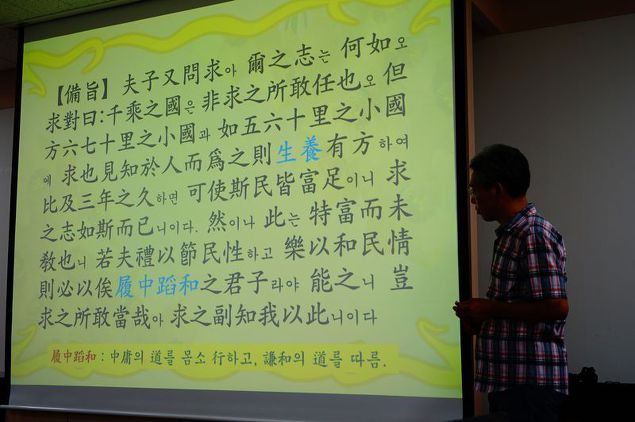 【備旨】 夫子又問求아 爾之志는 何如오
求對曰:千乘之國은 非求之所敢任也오 但
方六七十里之小國과 如五六十里之小國
에 求也見知於人而爲之則生養有方하여
比及三年之久하면 可使斯民皆富足이니 求
之志如斯而已니이다. 然이나 此는 特富而未
敎也니 若夫禮以節民性하고 樂以和民情
則必以俟履中蹈和之君子라야 能之니 豈
求之所敢當哉아 求之副知我以此니이다
履中蹈和 : 中庸의 道를 몸소 行하고, 謙和의 道를 따름.